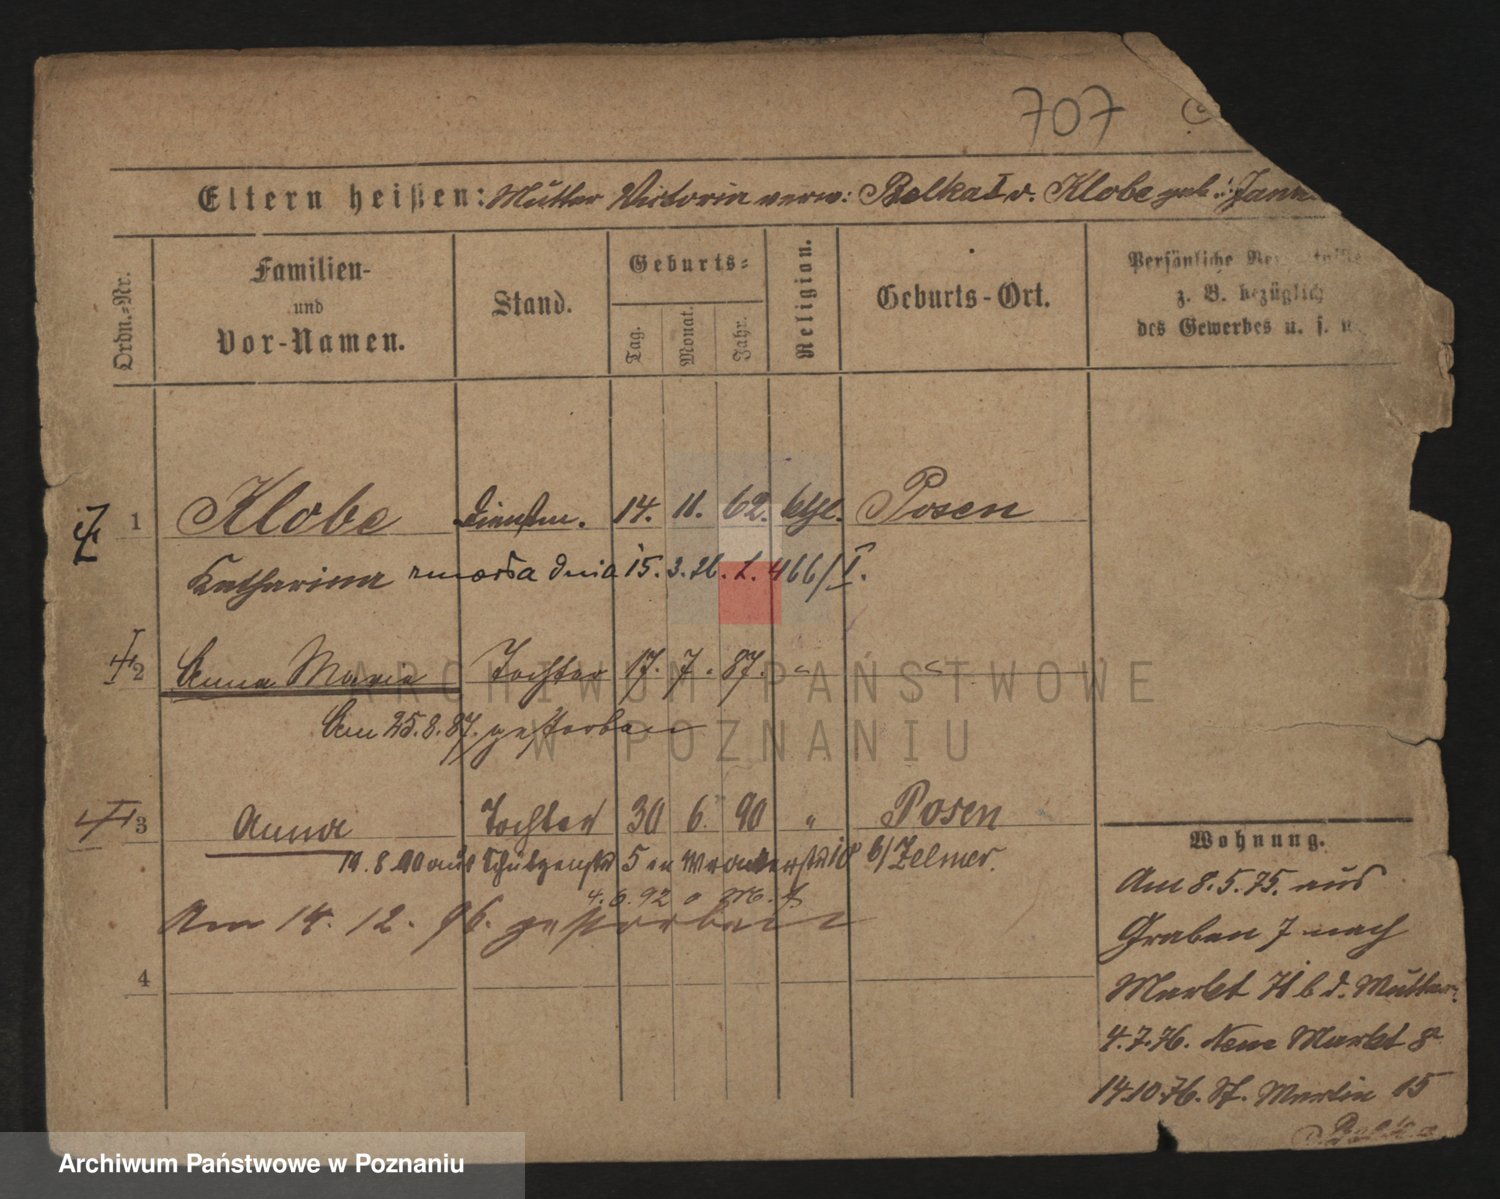 707
Eltern heißen: Mutter Victoria verw: Belka I v. Klobe geb:
Ordn.-Nr.
Familien-
und
Vor-Namen.
Stand.
Geburts-
Tag.
Monat.
Jahr.
Religion.
Geburts-Ort.
Persönliche
z. B. bezüglich
des Gewerbes u. s. w.
1 Klobe Dienstm. 14. 11. 62. ktl. Posen
Katharina zmarła dnia 15. 3. 26. L. 466/I.
2 Anna Maria Tochter 17. 7. 87. " "
Am 25.8.87. gestorben
3 Anna Tochter 30 6. 90 " Posen
11.8.90 aus Schützenstr 5 n 18 b/Zelmer.
4.6.92
Am 14. 12. 96. gestorben
4
Wohnung.
Am 8.5.75. aus
Graben 7 nach
Markt 71 b d. Mutter
4.7.76. Neue Markt 8
14.10.76. St. Martin 15
ARCHIWUM PAŃSTWOWE
W POZNANIU
Archiwum Państwowe w Poznaniu